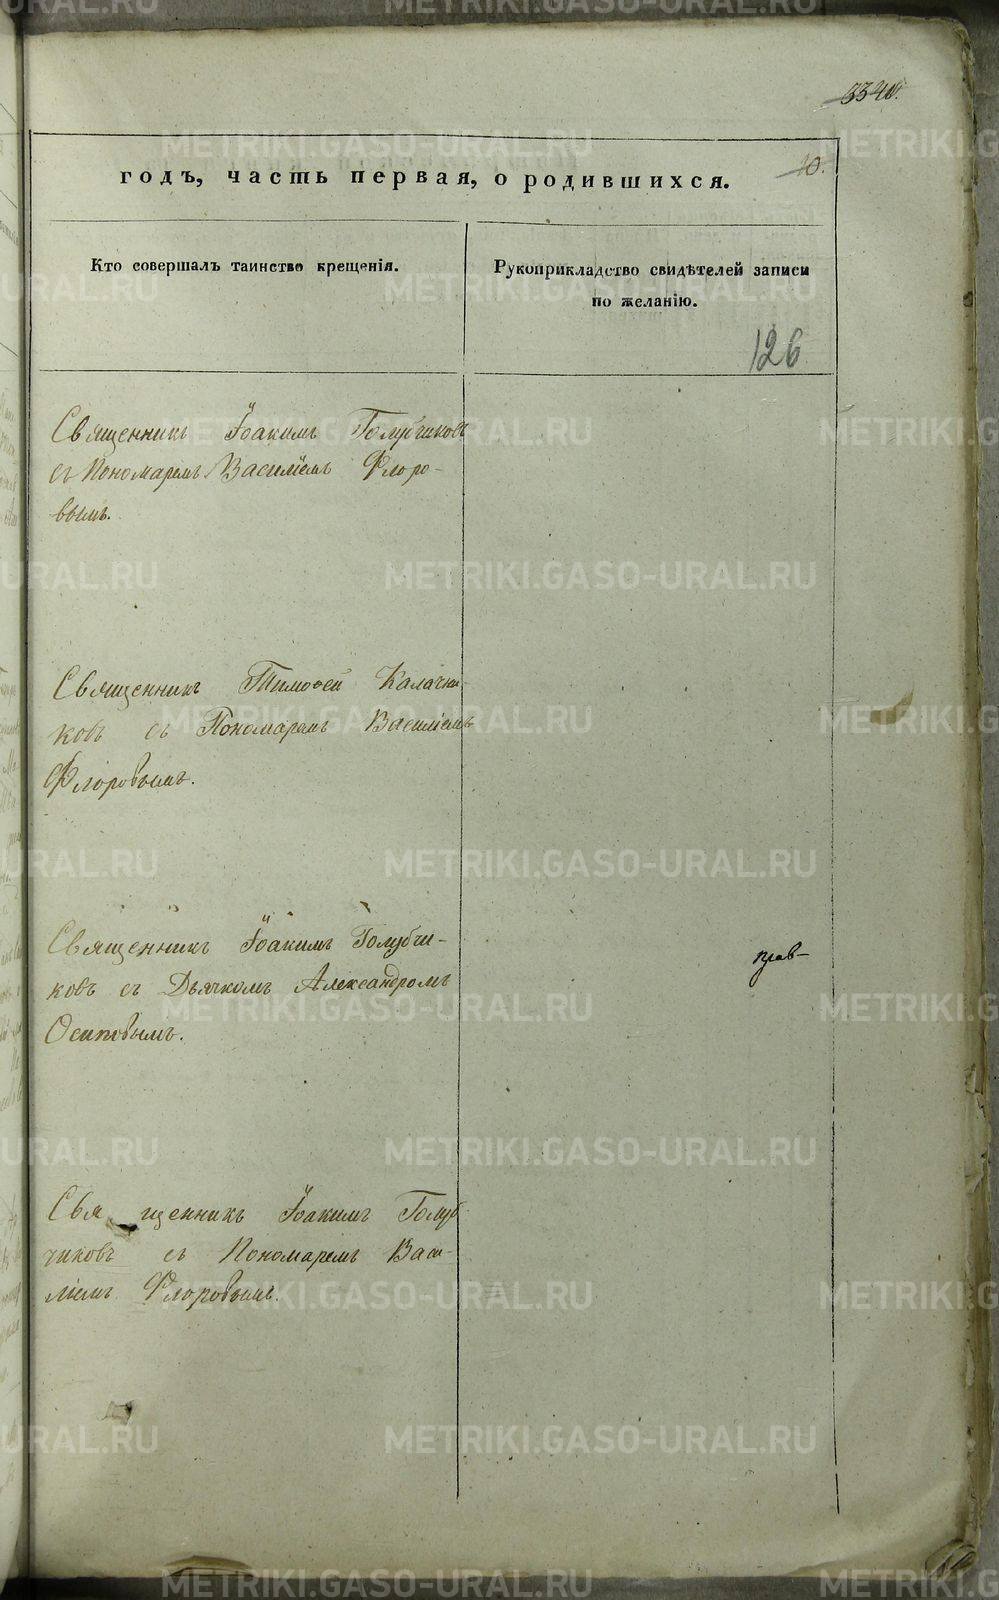 3340.
10.
годъ, часть первая, о родившихся.
Кто совершалъ таинство крещенія.
Рукоприкладство свидѣтелей записи
по желанію.
126
Священникъ Іоакимъ Голубчиковъ
съ Пономаремъ Василіемъ Флоро-
вымъ.
Священникъ Тимоѳей Калачни-
ковъ съ Пономаремъ Василіемъ
Флоровымъ.
Священникъ Іоакимъ Голубчи-
ковъ съ Дьячкомъ Александромъ
Осиповымъ.
Священникъ Іоакимъ Голуб
чиковъ съ Пономаремъ Васи-
ліемъ Флоровымъ.
METRIKI.GASO-URAL.RU